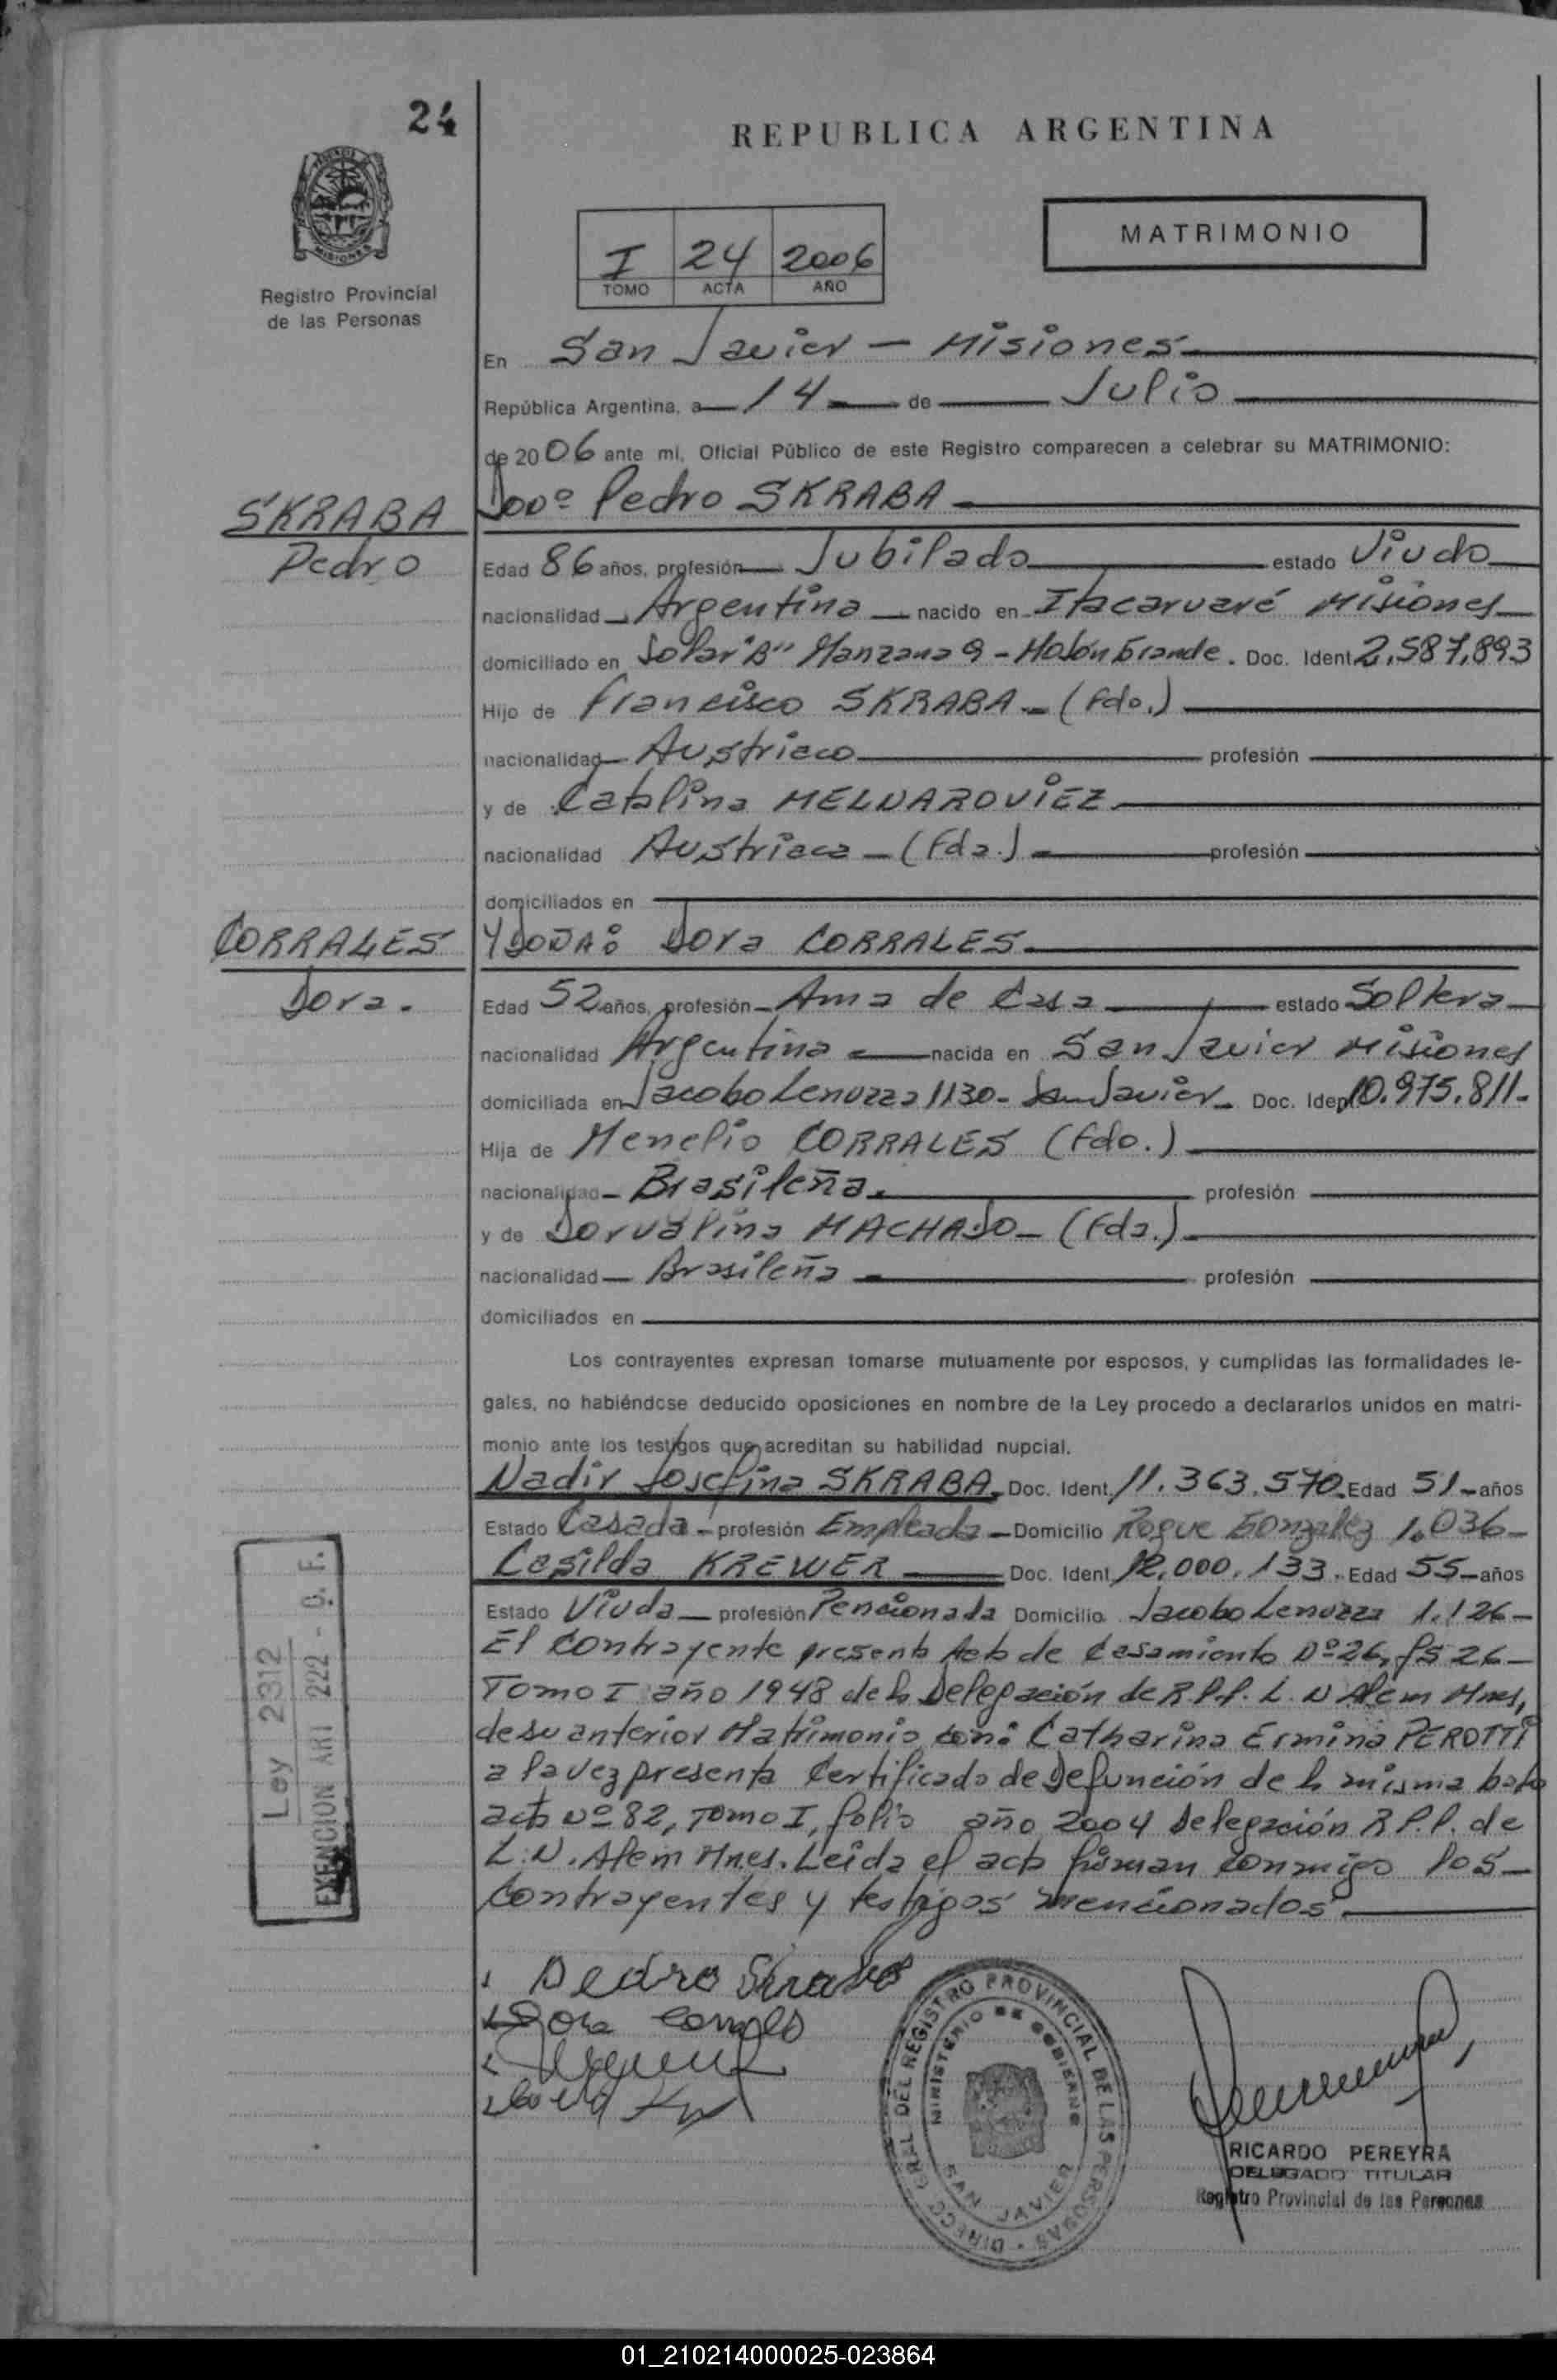 24
REPUBLICA ARGENTINA
MATRIMONIO
I 24 2006
TOMO ACTA AÑO
Registro Provincial
de las Personas
En San Javier - Misiones
República Argentina, a 14 de Julio
de 2006 ante mi, Oficial Público de este Registro comparecen a celebrar su MATRIMONIO:
SKRABA
Pedro
Don: Pedro SKRABA
Edad 86 años, profesión Jubilado estado Viudo
nacionalidad Argentina nacido en Itacaruaré Misiones
domiciliado en Solar "B" Manzana 9 - Mojón Grande. Doc. Ident 2.587.893
Hijo de Francisco SKRABA - (Fdo.)
nacionalidad Austriaco profesión
y de Catalina
nacionalidad Austriaca - (Fda.) profesión
domiciliados en
CORRALES
Dora.
Y DOÑA: Dora CORRALES
Edad 52 años, profesión Ama de Casa estado Soltera
nacionalidad Argentina nacida en San Javier Misiones
domiciliada en Jacobo Lenuzza 1130 - San Javier - Doc. Ident 10.975.811-
Hija de Menelio CORRALES (Fdo.)
nacionalidad Brasileña profesión
y de Dorvalina MACHADO - (Fda.)
nacionalidad Brasileña profesión
domiciliados en
Los contrayentes expresan tomarse mutuamente por esposos, y cumplidas las formalidades le-
gales, no habiéndose deducido oposiciones en nombre de la Ley procedo a declararlos unidos en matri-
monio ante los testigos que acreditan su habilidad nupcial.
Nadir Josefina SKRABA Doc. Ident. 11.363.570 Edad 51 años
Estado Casada profesión Empleada Domicilio Roque Gonzalez 1.036
Casilda KREWER Doc. Ident 12.000.133. Edad 55 años
Estado Viuda profesión Pencionada Domicilio Jacobo Lenuzza 1.126
El Contrayente presenta Acta de Casamiento Nº 26, fs 26
Tomo I año 1948 de la Delegación de R.P.P. L. N Alem Mnes,
de su anterior Matrimonio con: Catharina Ermina PEROTTI
a la vez presenta Certificado de Defunción de la misma bajo
acta Nº 82, Tomo I, folio año 2004 Delegación R.P.P. de
L.N. Alem Mnes. Leida el acta firman conmigo los
contrayentes y testigos mencionados.
Ley 2312
EXENCION ART 222 - C. F.
Pedro Skraba
Dora Corrales
DIRECC. GRAL. DEL REGISTRO PROVINCIAL DE LAS PERSONAS
MINISTERIO DE GOBIERNO
SAN JAVIER
RICARDO PEREYRA
DELEGADO TITULAR
Registro Provincial de las Personas
01_210214000025-023864